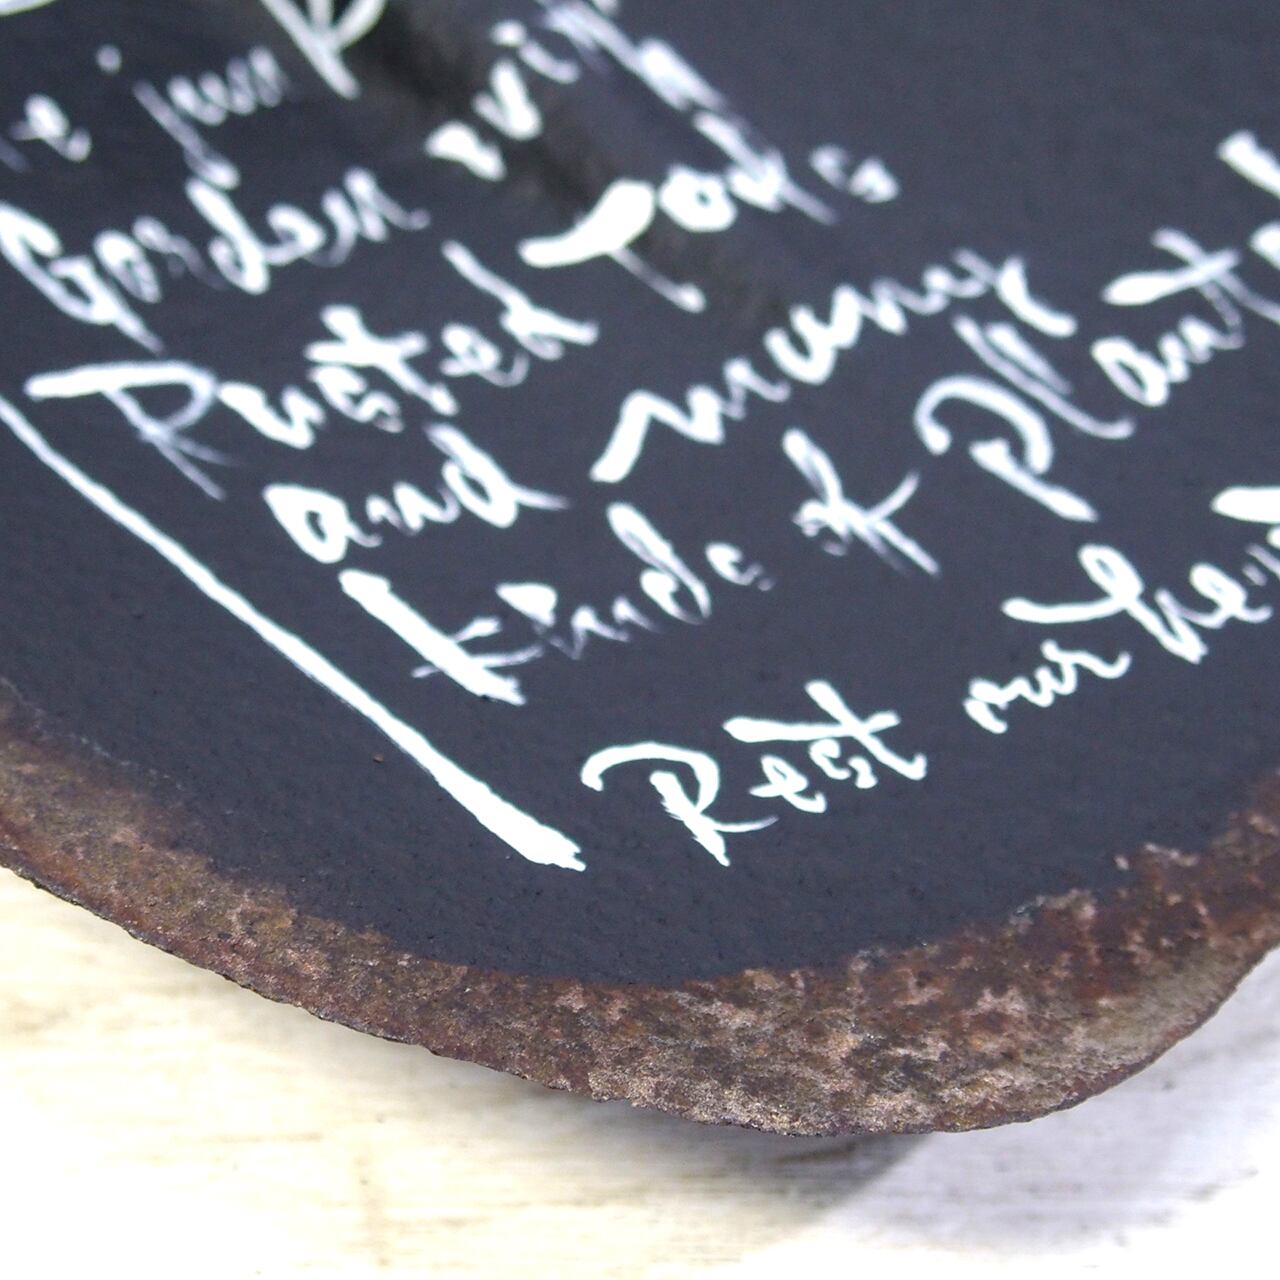 junk
Garden with
Rusted Tools
and many
kinds of Plant
Rest our